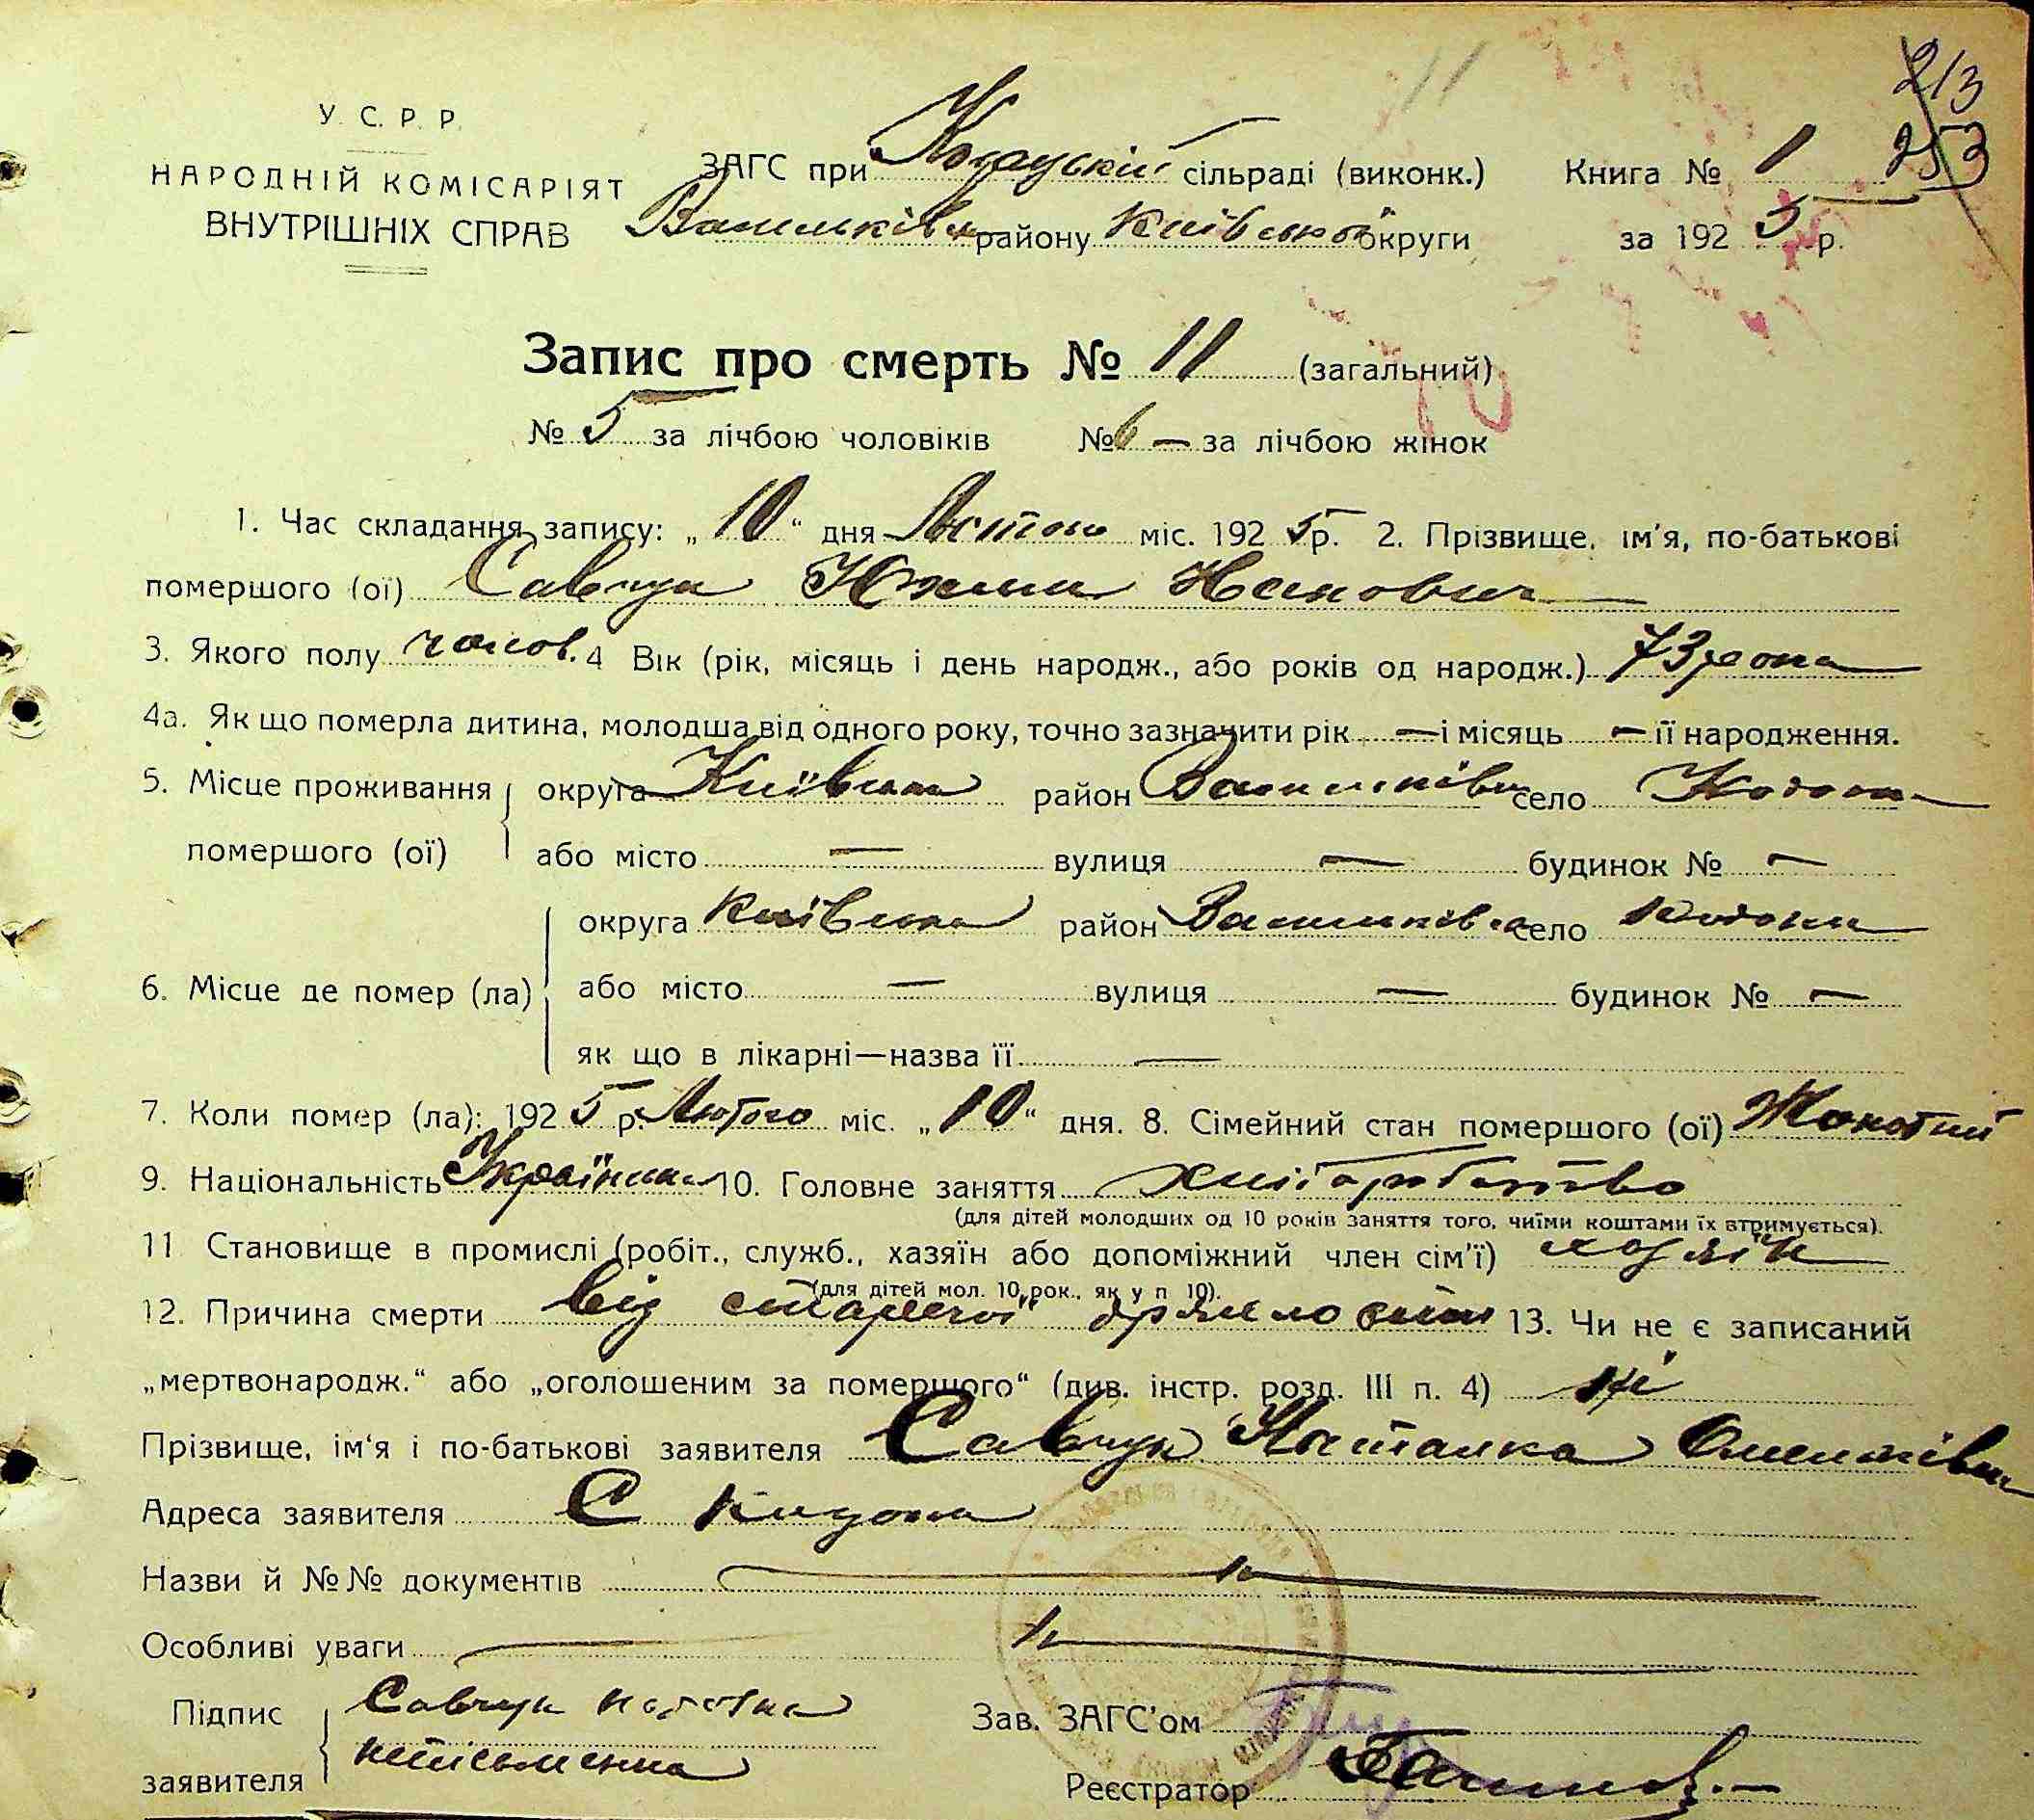 213
11
253
У. С. Р. Р.
НАРОДНІЙ КОМІСАРІЯТ
ВНУТРІШНІХ СПРАВ
ЗАГС при сільраді (виконк.) Книга № 1
Васильків району Київської округи за 1925 р.
Запис про смерть № 11 (загальний)
№ 5 за лічбою чоловіків № 6 — за лічбою жінок
1. Час складання запису: „10“ дня Лютого міс. 1925 р. 2. Прізвище, ім'я, по-батькові
помершого (ої) Савчук
3. Якого полу чолов. 4 Вік (рік, місяць і день народж., або років од народж.) 73 роки
4а. Як що померла дитина, молодша від одного року, точно зазначити рік — і місяць — її народження.
5. Місце проживання округа Київська район Васильків село
помершого (ої) або місто — вулиця — будинок № —
округа Київська район Васильків село
6. Місце де помер (ла) або місто — вулиця — будинок № —
як що в лікарні—назва її —
7. Коли помер (ла): 1925 р. Лютого міс. „10“ дня. 8. Сімейний стан помершого (ої) Жонатий
9. Національність Українець 10. Головне заняття хліборобство
(для дітей молодших од 10 років заняття того, чиїми коштами їх втримується).
11 Становище в промислі (робіт., служб., хазяїн або допоміжний член сім'ї) хазяїн
(для дітей мол. 10 рок., як у п 10).
12. Причина смерти від старечої дряхлости 13. Чи не є записаний
„мертвонародж.“ або „оголошеним за помершого“ (див. інстр. розд. III п. 4) ні
Прізвище, ім'я і по-батькові заявителя Савчук Наталка
Адреса заявителя С
Назви й №№ документів
Особливі уваги
Підпис Савчук Наталка
заявителя неписьменна
Зав. ЗАГС'ом
Реєстратор